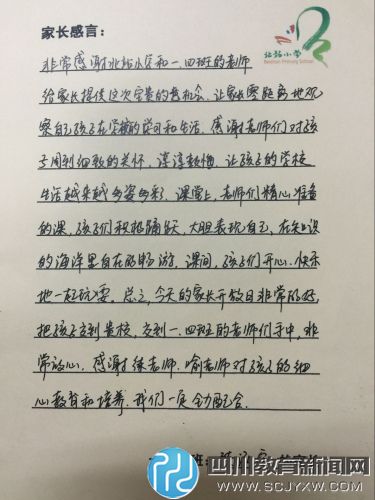 北站小学
Beizhan Primary School
家长感言:
非常感谢北站小学和一.四班的老师
给家长提供这次宝贵的机会.让家长零距离地观
察自己孩子在学校的学习和生活.感谢老师们对孩
子周到细致的关怀,谆谆教悔.让孩子的学校
生活越来越多姿多彩.课堂上,老师们精心准备
的课,孩子们积极踊跃,大胆表现自己,在知识
的海洋里自在的畅游.课间,孩子们开心.快乐
地一起玩耍.总之,今天的家长开放日非常的好,
把孩子交到贵校,交到一.四班的老师们手中,非
常放心.感谢徐老师.喻老师对孩子的细
心教育和培养.我们一定全力配合.
班:
的家长
四川教育新闻网
WWW.SCJYXW.COM